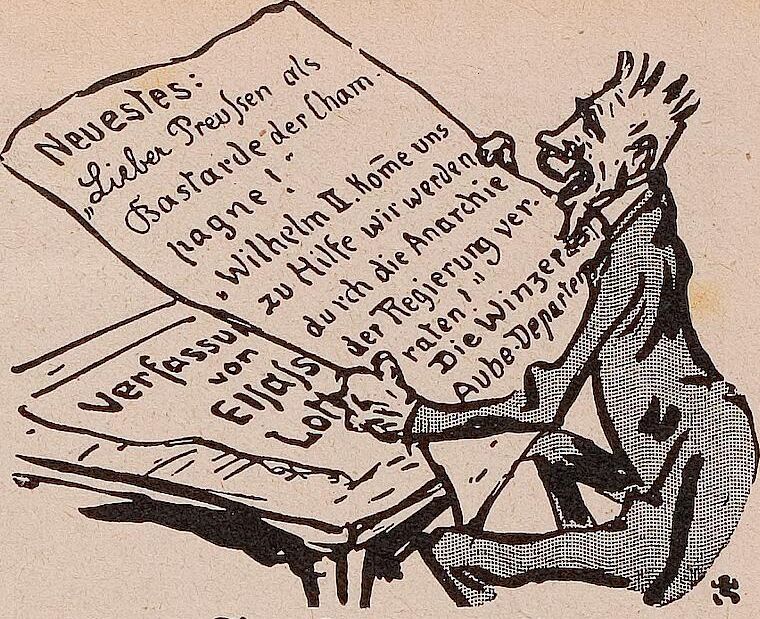 Neuestes:
„Lieber Preussen als
Bastarde der Cham-
pagne!"
„Wilhelm II. Kome uns
zu Hilfe wir werden
durch die Anarchie
der Regierung ver-
raten!"
Die Winzer
Aube-Departem
Verfassu
von
Elsass
Lot